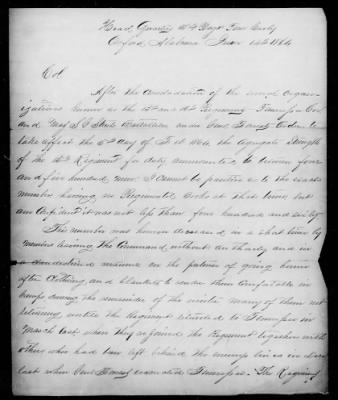 Head Quarters 15th Regt Tenn Cavly
Oxford, Alabama June 14th 1864
Col
After the consolidation of the rough organ-
izations known as the 15th and 16th Regiments Tennessee Cavl
and Maj Battalion under Genl Forrest order to
take effect the 5th day of Feb 1864, the aggregate strength
of the 15th Regiment for duty amounted to between four
and five hundred men I cannot be positive as to the exact
number having no Regimental books at that time, but
am confident it was not less than four hundred and sixty
The number was however decreased in a short time by
members leaving the Command without authority and in
a clandestine manner on the pretence of going home
after Clothing and blankets to render them comfortable in
camps during the remainder of the winter many of them not
returning until the Regiment returned to Tennessee in
March last when they rejoined the Regiment together with
others who had been left behind the enemys lines in Decr
last when Genl Forrest evacuated Tennessee - The Regiment